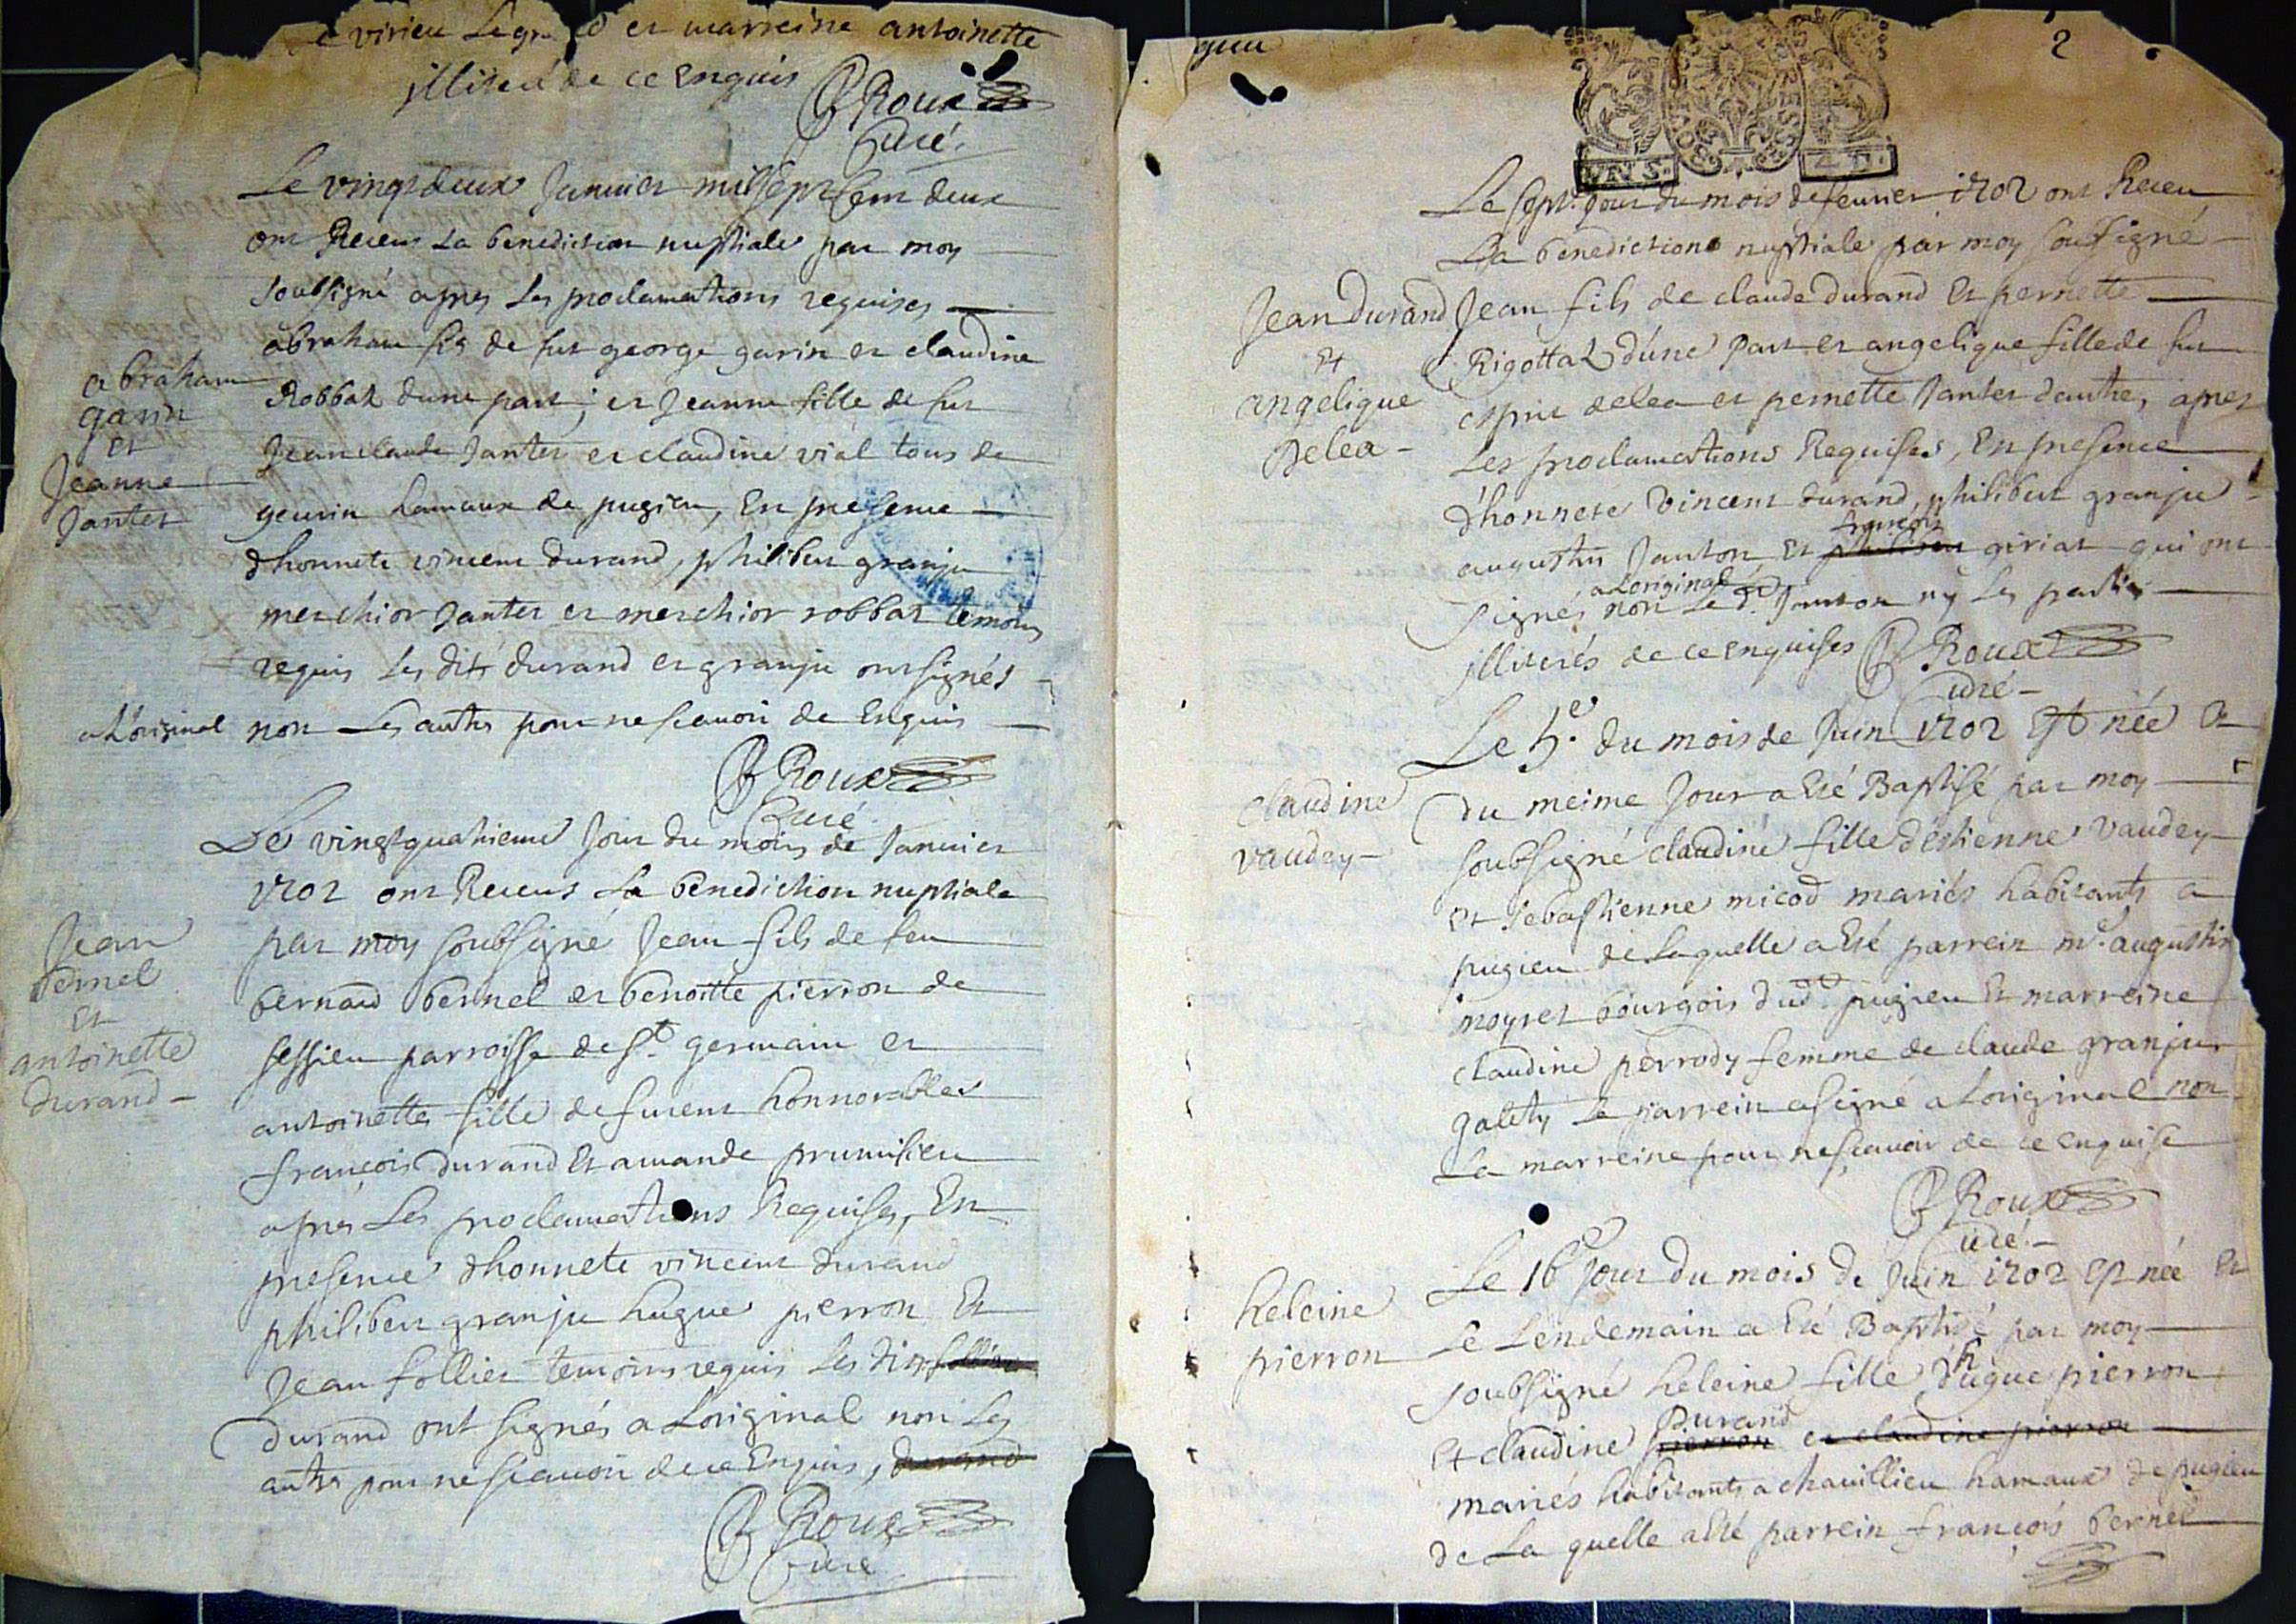 virieu Legrand et marreine antoinette
illiteré de ce enquis
B Roux
Curé.
Le vingtdeux Janvier mil sept cent deux
ont Receus La benediction nuptiale par moy
soubsigné apres Les proclamations requises
abraham fis de fut george garin et claudine
Robbat dune part; et Jeanne fille de fut
Jean claude Janter et claudine vial tous de
geurin hamaux de pugieu, En presence
dhonnete vincent durand, philibert granju
merchior Janter et merchior robbat temoins
requis Les dits durand et granju ont signés
non Les autres pour ne scavoir de Enquis
a Loriginal
abraham
garin
et
Jeanne
Janter
B Roux
Curé
Le vingtquatrieme Jour du mois de Janvier
1702 ont Receus La benediction nuptiale
par moy soubsigné Jean fils de feu
bernard bernel et benoitte pierron de
sessieu parroisse de St. germain et
antoinette fille de furent honnorables
françois durand Et amande prumilieu
apres Les proclamations Requises, En
presence dhonnete vincent durand
philibert granju hugue pierron Et
Jean follier temoins requis Les dits follier
durand ont signés a Loriginal non Les
autres pour ne scavoir de ce Enquis, durand
Jean
bernel
Et
antoinette
durand
B Roux
Curé
2
VN S.
Le sept. Jour du mois de fevrier 1702 ont Receu
La benediction nuptiale par moy sousigné
Jean fils de claude durand Et pernette
Rigottat d'une part et angelique fille de fut
esprit delea et pernette Janter d'autre, apres
Les proclamations Requises, En presence
d'honnete Vincent durand, philibert granju
augustin Janton Et philibert françois giriat qui ont
signés a Loriginal non Le d. Janton ny Les parties
illiterés de ce enquises
Jean Durand
et
angelique
Delea
B Roux
Curé
Le 5.e du mois de Juin 1702 Est née Et
du meime Jour a Eté Baptisé par moy
soubsigné claudine fille d'estienne Vaudey
Et sebastienne micod mariés habitants a
pugieu de Laquelle a Eté parrein me. augustin
moyret bourgois dud. pugieu Et marreine
claudine perrody femme de claude granju
galety Le parrein a signé a Loriginal non
La marreine pour ne scavoir de ce enquise
claudine
vaudey
B Roux
Curé
Le 16e Jour du mois de Juin 1702 Est née Et
Le Lendemain a Eté Baptisé par moy
soubsigné heleine fille d'hugue pierron
Et claudine pierron Durand et claudine pierron
mariés habitants a chavillieu hamaux de pugieu
de La quelle a Eté parrein françois bernel
heleine
pierron